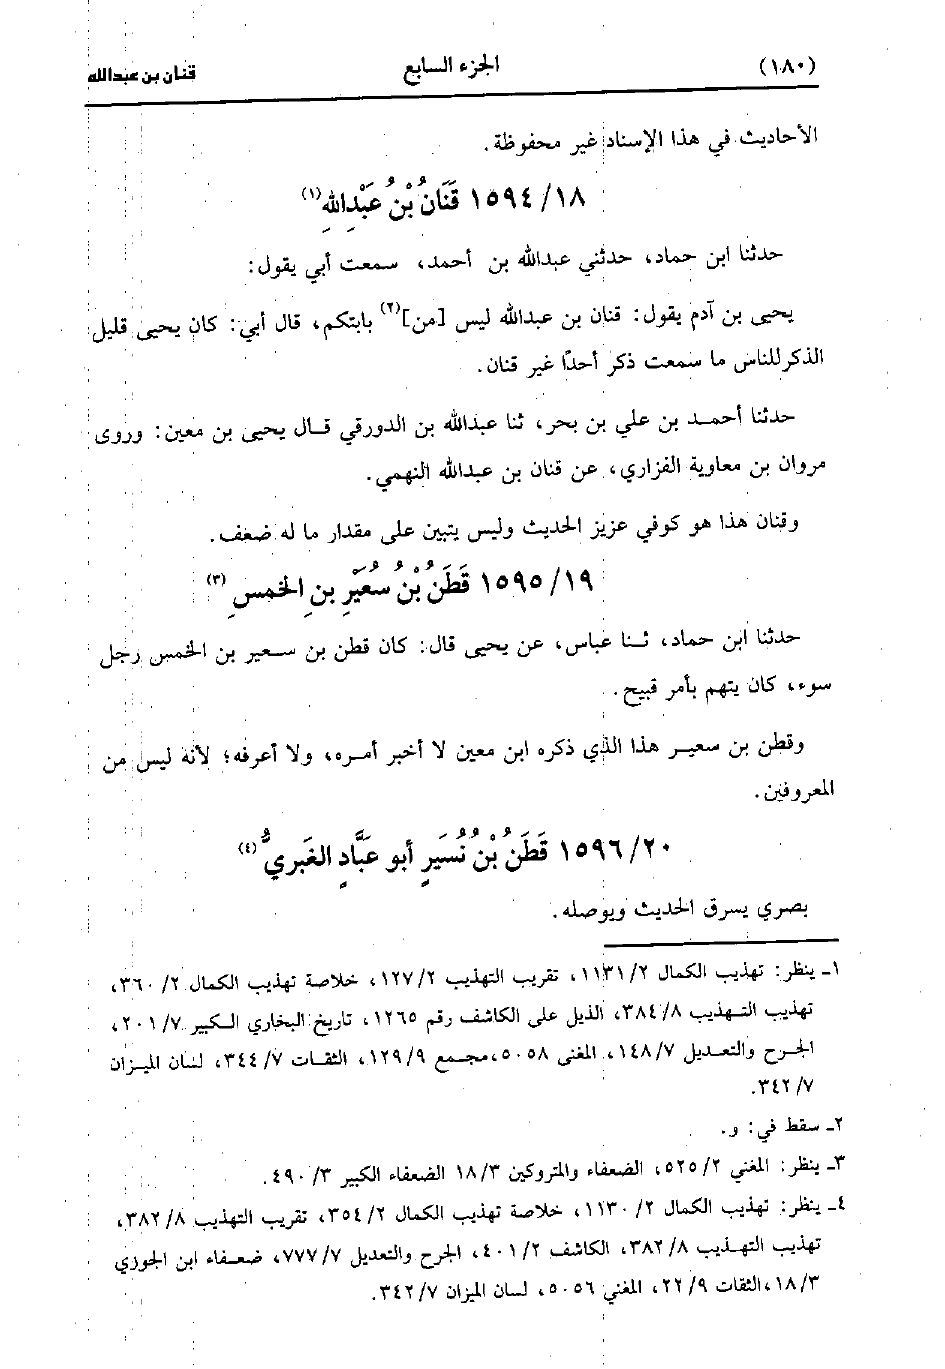 (١٨٠) الجزء السابع قنان بن عبدالله
الأحاديث في هذا الإسناد غير محفوظة.
١٨/ ١٥٩٤ قَنَانُ بْنُ عَبْدِاللهِ(١)
حدثنا ابن حماد، حدثني عبدالله بن أحمد، سمعت أبي يقول:
يحيى بن آدم يقول: قنان بن عبدالله ليس [من](٢) بابتكم، قال أبي: كان يحيى قليل
الذكر للناس ما سمعت ذكر أحدًا غير قنان.
حدثنا أحمـد بن علي بن بحر، ثنا عبدالله بن الدورقي قـال يحيى بن معين: وروى
مروان بن معاوية الفزاري، عن قنان بن عبدالله النهمي.
وقنان هذا هو كوفي عزيز الحديث وليس يتبين على مقدار ما له ضعف.
١٩/ ١٥٩٥ قَطَنُ بْنُ سُعَيَرِ بنِ الخمسِ(٣)
حدثنا ابن حماد، ثـنا عباس، عن يحيى قال: كان قطن بن سـعير بن الخمس رجل
سوء، كان يتهم بأمر قبيح.
وقطن بن سعيـر هذا الذي ذكره ابن معين لا أخبر أمـره، ولا أعرفه؛ لأنه ليس من
المعروفين.
٢٠/ ١٥٩٦ قَطَنُ بْنُ نُسَيَرٍ أبو عبَّادٍ الغَبريُّ(٤)
بصري يسرق الحديث ويوصله.
١ـ ينظر: تهذيب الكمال ٢/ ١١٣١، تقريب التهذيب ٢/ ١٢٧، خلاصة تهذيب الكمال ٢/ ٣٦٠،
تهذيب التـهذيب ٨/ ٣٨٤، الذيل على الكاشف رقم ١٢٦٥، تاريخ البخاري الـكبير ٧/ ٢٠١،
الجـرح والتعـديل ٧/ ١٤٨، المغنى ٥٠٥٨،مجمـع ٩/ ١٢٩، الثقـات ٧/ ٣٤٤، لسان الميـزان
٧/ ٣٤٢.
٢ـ سقط في: و.
٣ـ ينظر: المغني ٢/ ٥٢٥، الضعفاء والمتروكين ٣/ ١٨ الضعفاء الكبير ٣/ ٤٩٠.
٤ـ ينظر: تهذيب الكمال ٢/ ١١٣٠، خلاصة تهذيب الكمال ٢/ ٣٥٤، تقريب التهذيب ٨/ ٣٨٢،
تهذيب التهـذيب ٨/ ٣٨٢، الكاشف ٢/ ٤٠١، الجرح والتعديل ٧/ ٧٧٧، ضعـفاء ابن الجوزي
٣/ ١٨،الثقات ٩/ ٢٢، المغني ٥٠٥٦، لسان الميزان ٧/ ٣٤٢.